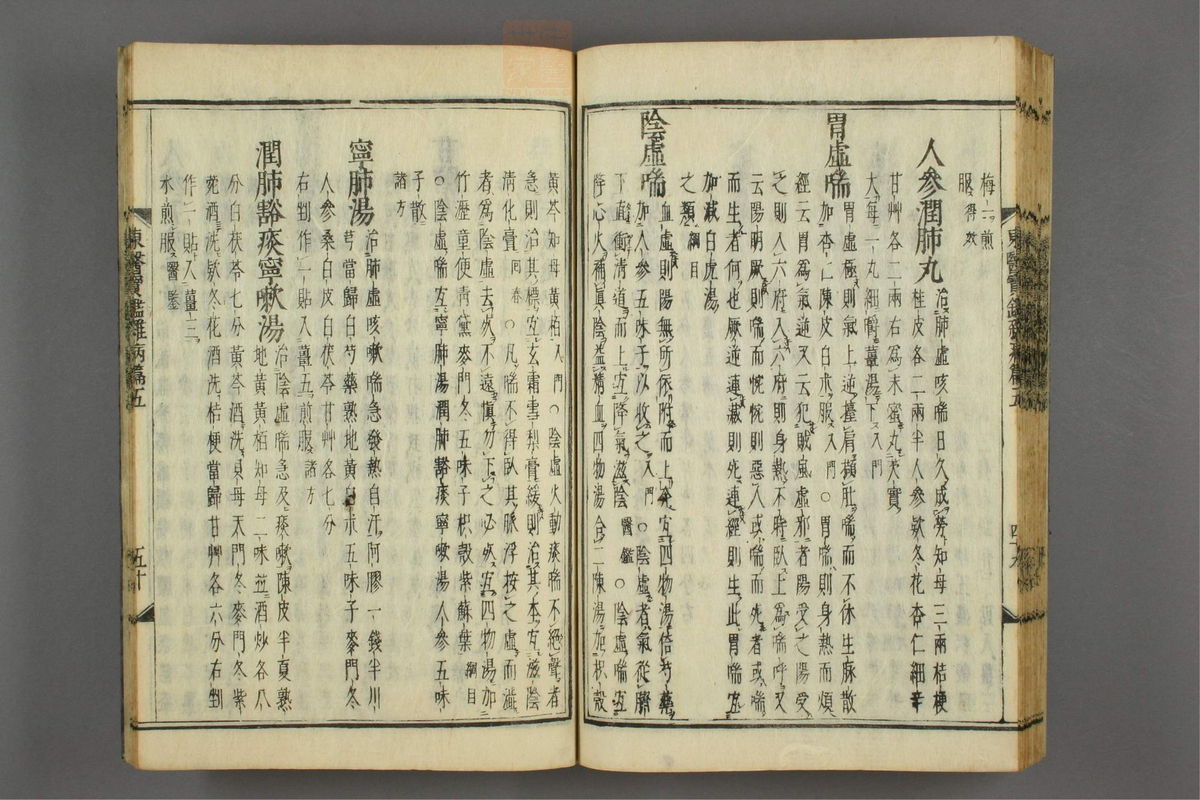 梅二煎
服得效
人參潤肺丸 治肺虛咳喘日久成勞知母三兩桔梗
桂皮各二兩半人參款冬花杏仁細辛
甘艸各二兩右爲末蜜丸芡實
大每一丸細嚼薑湯下入門
胃虛喘 胃虛極則氣上逆擡肩擷肚喘而不休生脉散
加杏仁陳皮白朮服入門○胃喘則身熱而煩
經云胃爲氣逆又云犯賊風虛邪者陽受之陽受
之則入六府入六府則身熱不時臥上爲喘呼又
云陽明厥則喘而惋惋則惡人或喘而死者或喘
而生者何也厥逆連藏則死連經則生此胃喘宜
加減白虎湯
之類綱目
陰虛喘 血虛則陽無所依附而上奔宜四物湯倍芍藥
加人參五味子以收之入門○陰虛者氣從臍
下直衝清道而上宜降氣滋陰醫鑑○陰虛喘宜
降心火補眞陰益精血四物湯合二陳湯加枳殼
黃芩知母黃栢入門○陰虛火動痰喘不絕聲者
急則治其標宜玄霜雪梨膏緩則治其本宜滋陰
清化膏回春○凡喘不得臥其脉浮按之虛而濇
者爲陰虛去死不遠愼勿下之下之必死宜四物湯加
竹瀝童便靑黛麥門冬五味子枳殼紫蘇葉綱目
○陰虛喘宜寧肺湯潤肺豁痰寧嗽湯人參五味
子散
諸方
寧肺湯 治肺虛咳嗽喘急發熱自汗阿膠一錢半川
芎當歸白芍藥熟地黃白朮五味子麥門冬
人參桑白皮白茯苓甘艸各七分
右剉作一貼入薑五煎服諸方
潤肺豁痰寧嗽湯 治陰虛喘急及痰嗽陳皮半夏熟
地黃黃栢知母二味並酒炒各八
分白茯苓七分黃芩酒洗貝母天門冬麥門冬紫
菀酒洗款冬花酒洗桔梗當歸甘艸各六分右剉
作二貼入薑三
水煎服醫鑑
東醫寶鑑雜病篇五
五十